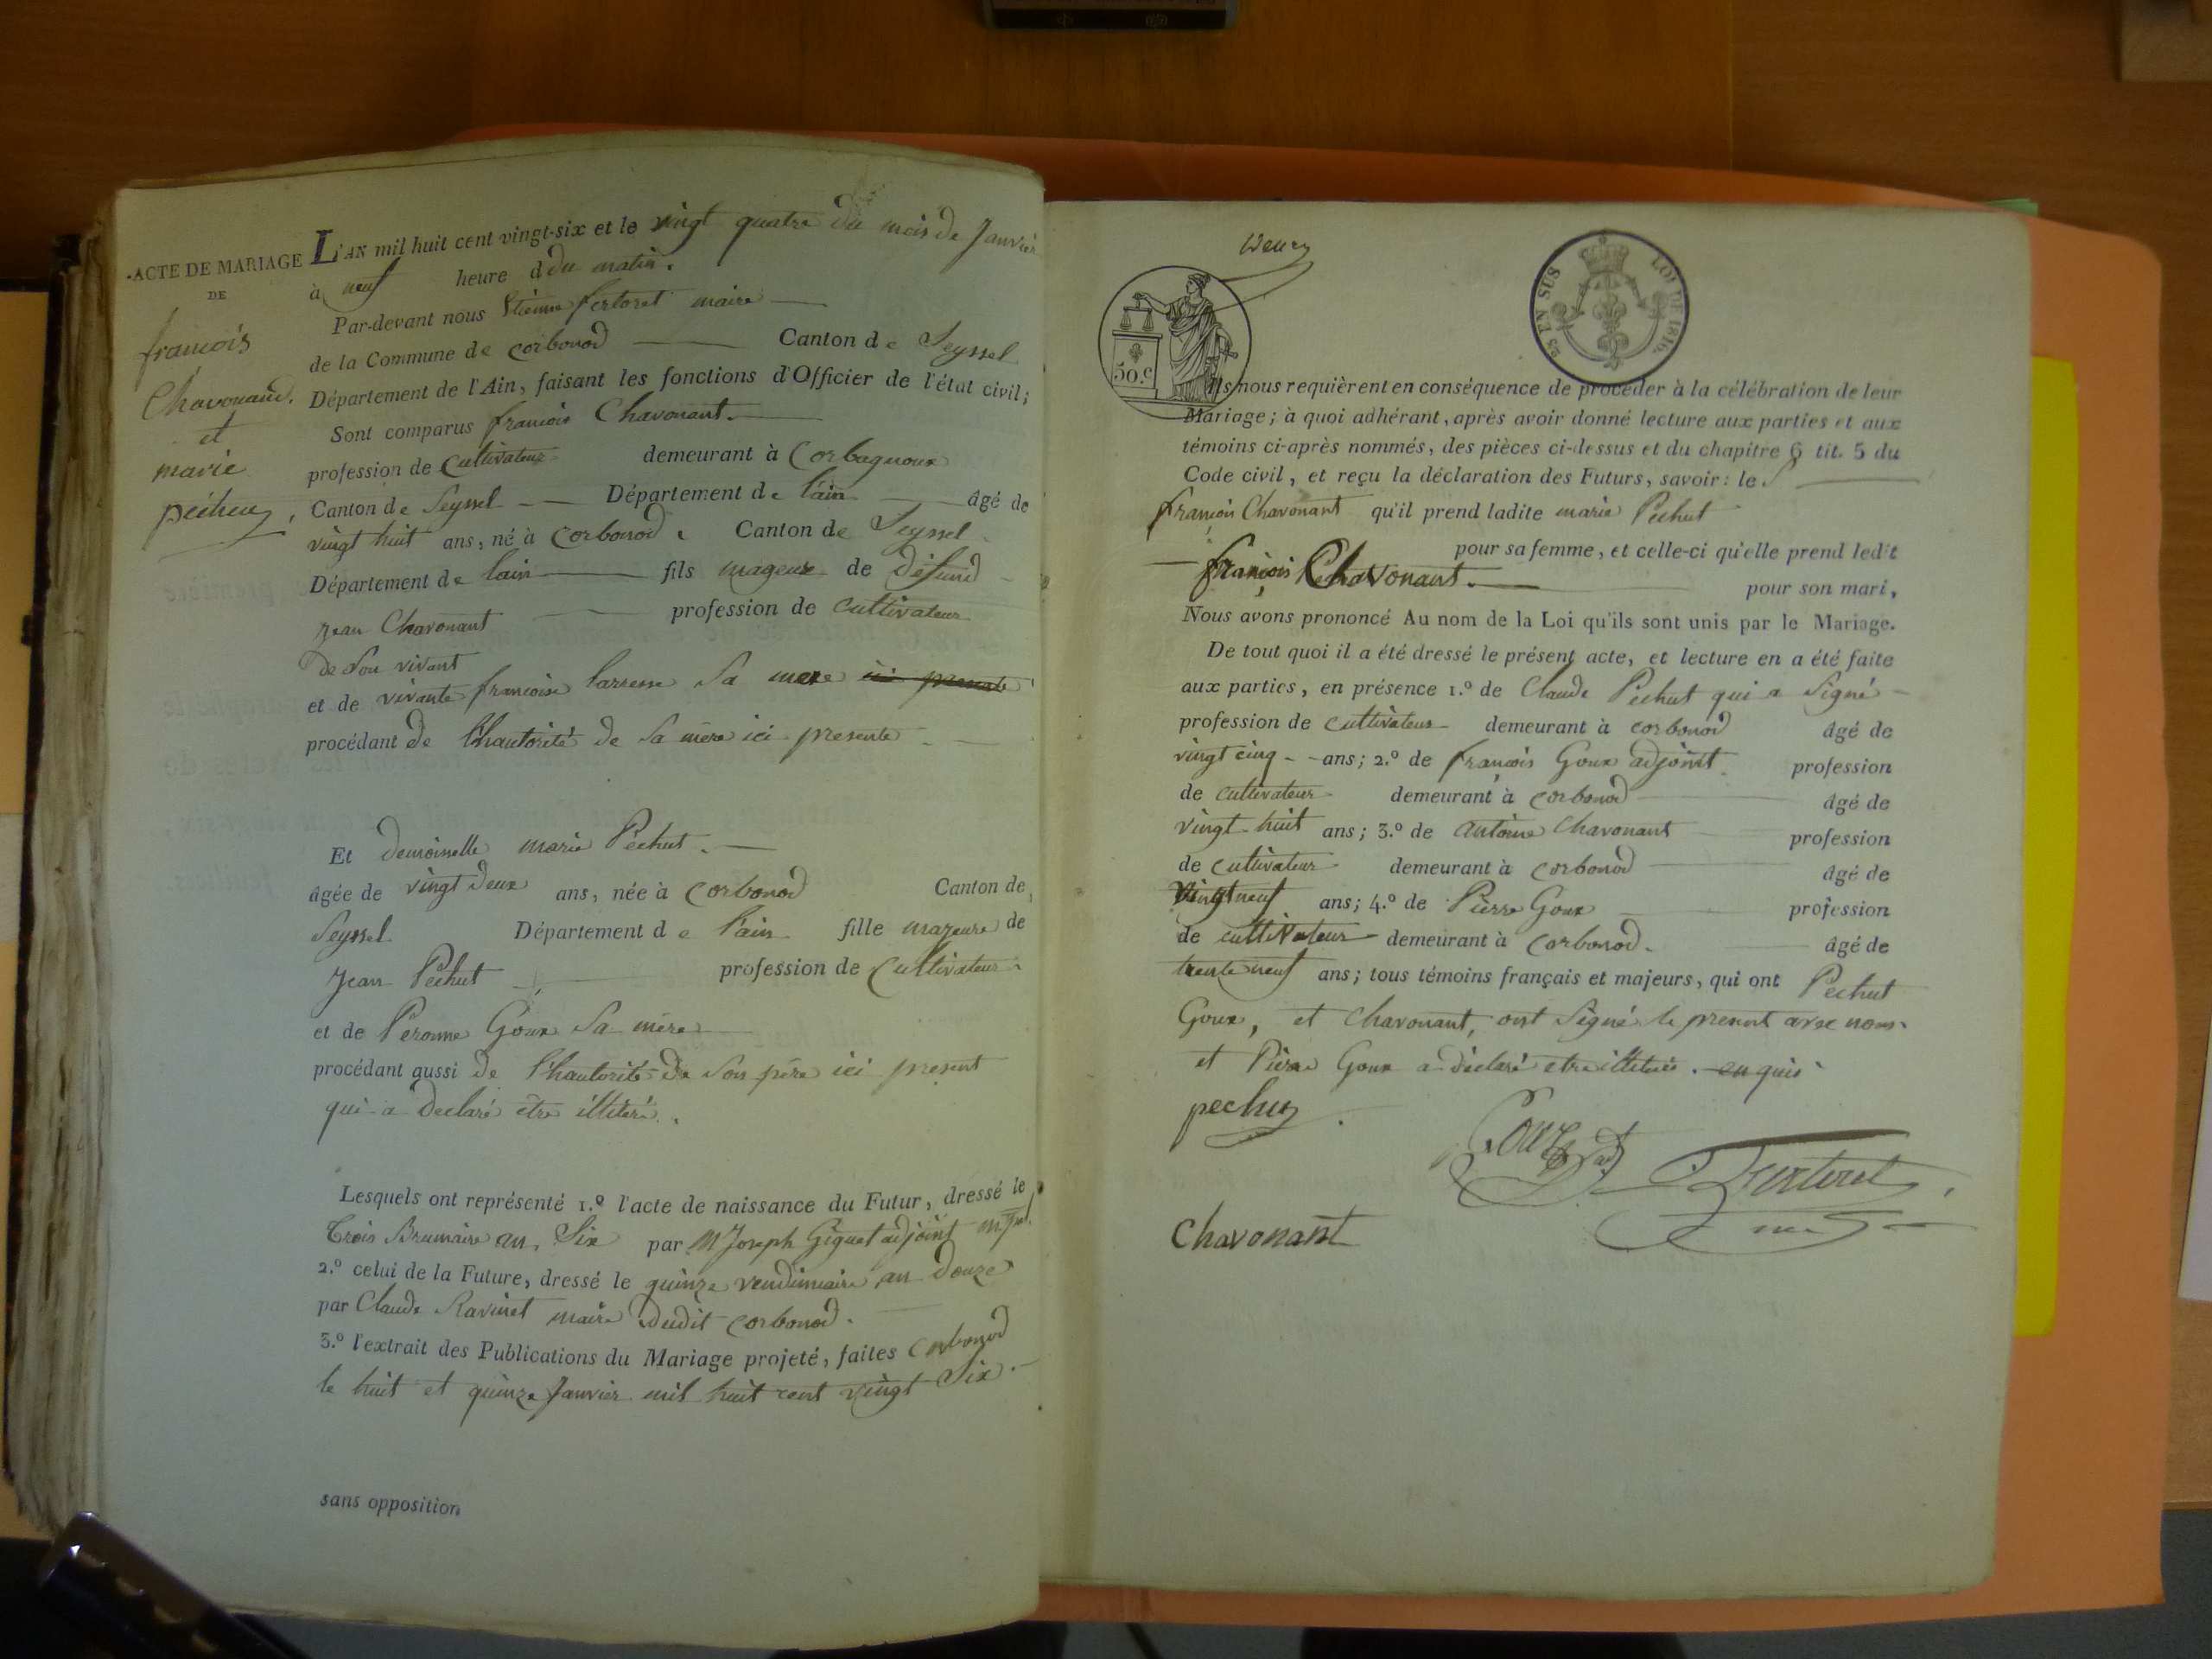 ACTE DE MARIAGE
DE
françois
Chavonand.
et
marie
péchuz,
L'AN mil huit cent vingt-six et le vingt quatre du mois de Janvier
à neuf heure d du matin.
Par-devant nous Etienne fertoret maire
de la Commune de corbonod Canton de Seyssel
Département de l'Ain, faisant les fonctions d'Officier de l'état civil;
Sont comparus françois Chavonant.
profession de Cultivateur demeurant à Corbagnoux
Canton de Seyssel Département de l'ain âgé de
vingt huit ans, né à Corbonod Canton de Seyssel
Département de lain fils mageur de défund
Jean Chavonant profession de cultivateur
de son vivant
et de vivante francoise larresse sa mere ici presente
procédant de l'hautorité de sa mère ici presente
Et demoiselle marie Péchut.
âgée de vingt deux ans, née à Corbonod Canton de
Seyssel Département d e l'ain fille mageure de
Jean Péchut profession de Cultivateur
et de Peronne Goux sa mère
procédant aussi de l'hautorité de son père ici present
qui a declaré etre illitéré.
Lesquels ont représenté 1.º l'acte de naissance du Futur, dressé le
trois Brumaire an Six par M Joseph Giguet adjoint
2.º celui de la Future, dressé le quinze vendimiaire an douze
par Claude Ravinet maire dudit corbonod.
3.º l'extrait des Publications du Mariage projeté, faites Corbonod
le huit et quinze Janvier mil huit cent vingt Six.
sans opposition
50.c
25 EN SUS LOI DE 1816.
Ils nous requièrent en conséquence de procéder à la célébration de leur
Mariage; à quoi adhérant, après avoir donné lecture aux parties et aux
témoins ci-après nommés, des pièces ci-dessus et du chapitre 6 tit. 5 du
Code civil, et reçu la déclaration des Futurs, savoir: le S
François Chavonant qu'il prend ladite marie Péchut
pour sa femme, et celle-ci qu'elle prend ledit
françois Chavonant. pour son mari,
Nous avons prononcé Au nom de la Loi qu'ils sont unis par le Mariage.
De tout quoi il a été dressé le présent acte, et lecture en a été faite
aux parties, en présence 1.º de Claude Péchut qui a Signé
profession de cultivateur demeurant à corbonod âgé de
vingt cinq ans; 2.º de françois Goux adjoint profession
de cultivateur demeurant à corbonod âgé de
vingt huit ans; 3.º de antoine Chavonant profession
de cultivateur demeurant à corbonod âgé de
Vingt neuf ans; 4.º de Pierre Goux profession
de cultivateur demeurant à Corbonod. âgé de
trente neuf ans; tous témoins français et majeurs, qui ont Pechut
Goux, et Chavonant, ont Signé le present avec nous
et Pierre Goux a déclaré etre illitéré. enquis
pechuz
Goux ad
Fertoret
Chavonant